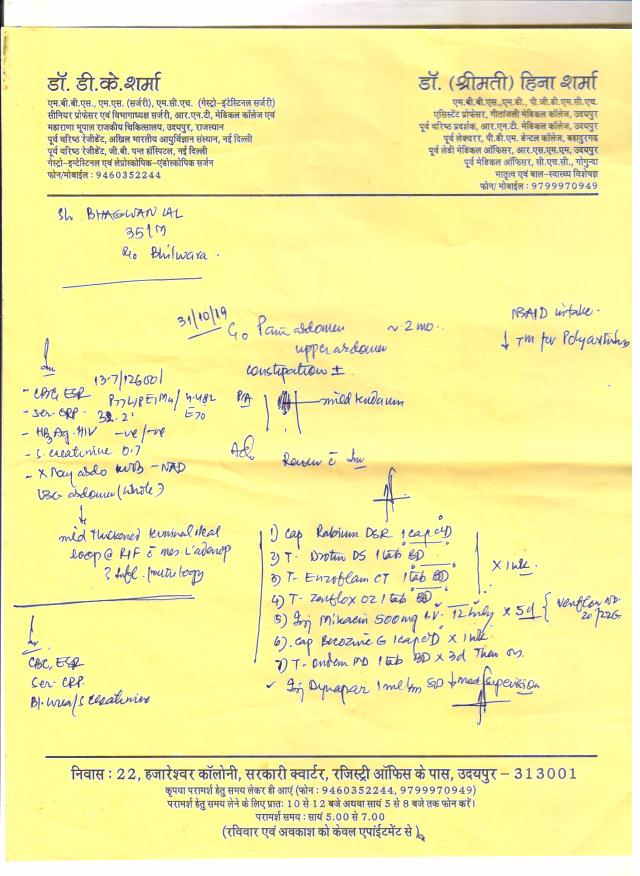 डॉ. डी.के.शर्मा
एम.बी.बी.एस., एम.एस. (सर्जरी), एम.सी.एच. (गेस्ट्रो-इंटेस्टिनल सर्जरी)
सीनियर प्रोफेसर एवं विभागाध्यक्ष सर्जरी, आर.एन.टी. मेडिकल कॉलेज एवं
महाराणा भूपाल राजकीय चिकित्सालय, उदयपुर, राजस्थान
पूर्व वरिष्ठ रेजीडेंट, अखिल भारतीय आयुर्विज्ञान संस्थान, नई दिल्ली
पूर्व वरिष्ठ रेजीडेंट, जी.बी. पन्त हॉस्पिटल, नई दिल्ली
गेस्ट्रो-इन्टेस्टिनल एवं लेप्रोस्कोपिक-एंडोस्कोपिक सर्जन
फोन/मोबाईल : 9460352244
डॉ. (श्रीमती) हिना शर्मा
एम.बी.बी.एस.,एम.डी., पी.जी.डी.एम.सी.एच.
एसिस्टेंट प्रोफेसर, गीतांजली मेडिकल कॉलेज, उदयपुर
पूर्व वरिष्ठ प्रदर्शक, आर.एन.टी. मेडिकल कॉलेज, उदयपुर
पूर्व लेक्चरर, पी.डी.एम. डेन्टल कॉलेज, बहादुरगढ़
पूर्व लेडी मेडिकल ऑफिसर, आर.एस.एम.एम, उदयपुर
पूर्व मेडिकल ऑफिसर, सी.एच.सी., गोगुन्दा
मातृत्व एवं बाल-स्वास्थ्य विशेषज्ञ
फोन/ मोबाईल : 9799970949
Sh. BHAGWAN LAL
35/M
R/o Bhilwara.
31/10/19
C/o Pain abdomen ~ 2 mo.
upper abdomen
constipation ±
NSAID intake.
↓ Tm for Polyarthritis
P/A mild tenderness
Adv
Review c̄ Inv
Inv
- CBC, ESR 13.7/12600/
P77 L18 E1 M4/ 4.48L
E70
- Ser. CRP. 32.2
- HBsAg. HIV -ve/-ve
- S. creatinine 0.7
- X Ray abdo - NAD
USG abdomen (whole)
↓
mild thickened terminal ileal
loop @ RIF c̄ mes. L'adenop
? Infl. pathology
1) Cap Rabium DSR 1 cap OD
2) T- Drotin DS 1 tab BD
3) T- Enzoflam CT 1 tab BD
4) T- Zenflox OZ 1 tab BD
x 1 wk.
5) Inj Mikacin 500mg I.V. 12 hrly x 5d { Venflon no. 20/22G
6). Cap Becozinc G 1 cap OD x 1 wk.
7) T- Ondem MD 1 tab BD x 3d Then SOS
✓ Inj Dynapar 1 ml Im SD ↓ med supervision
Inv
CBC, ESR
Ser. CRP
Bl. Urea/S creatinine
निवास : 22, हजारेश्वर कॉलोनी, सरकारी क्वार्टर, रजिस्ट्री ऑफिस के पास, उदयपुर – 313001
कृपया परामर्श हेतु समय लेकर ही आएं (फोन : 9460352244, 9799970949)
परामर्श हेतु समय लेने के लिए प्रातः 10 से 12 बजे अथवा सायं 5 से 8 बजे तक फोन करें।
परामर्श समय : सायं 5.00 से 7.00
(रविवार एवं अवकाश को केवल एपाईटमेंट से)